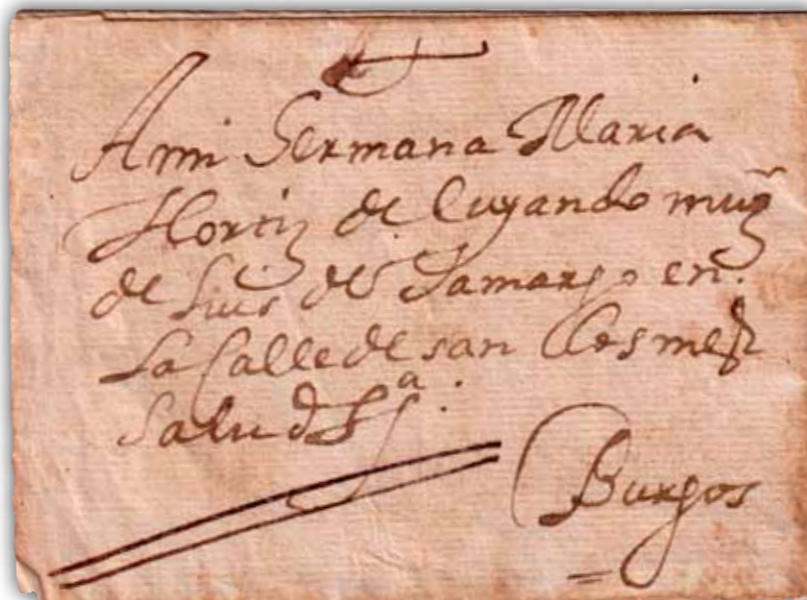 A mi Hermana Maria
Hortiz de Cuyando mug
de Luis de Tamargo en
La Calle de san
Salud
Burgos